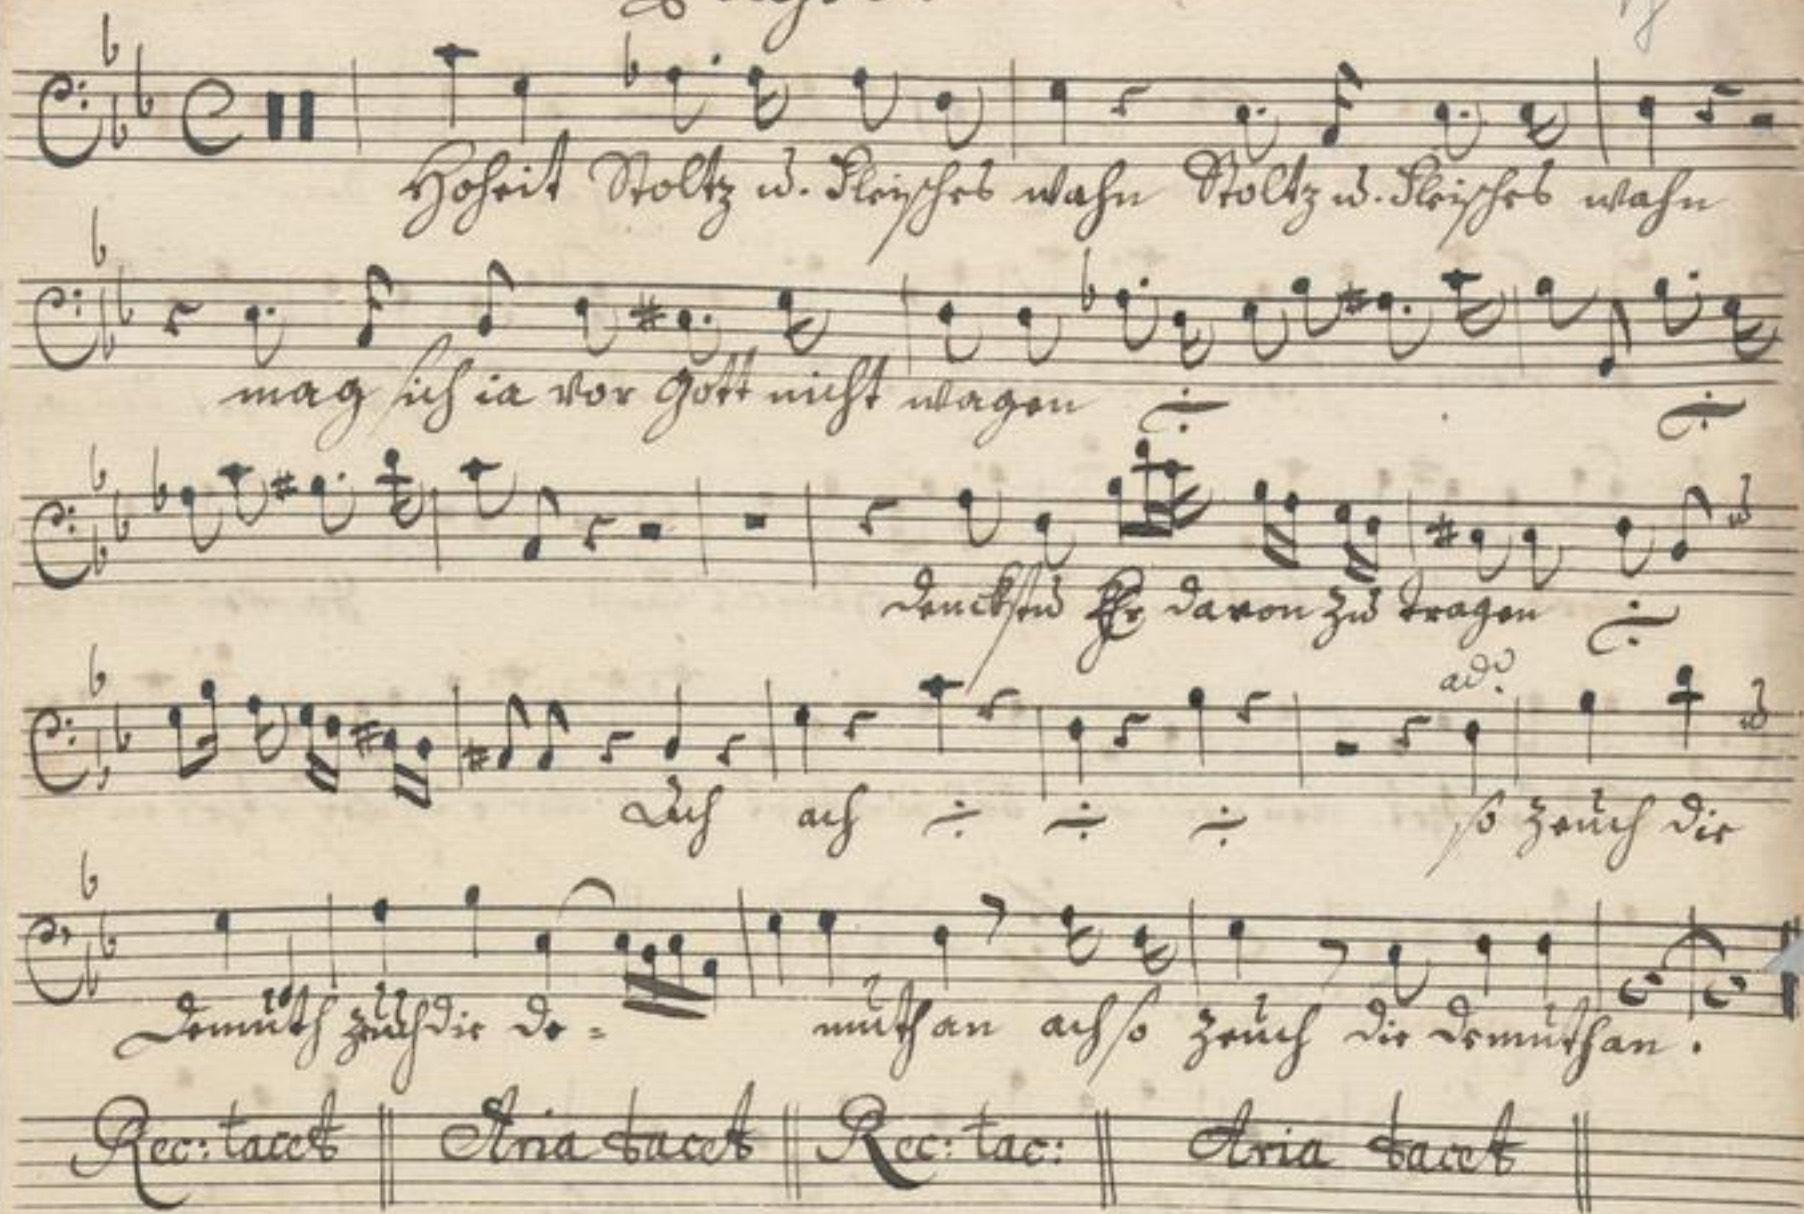 Hoheit Stoltz u. Fleisches wahn Stoltz u. Fleisches wahn
mag sich ia vor Gott nicht wagen
denckstu Er davon zu tragen
ad:o
Ach ach so zeuch die
Demuth zeuch die de= muth an ach so zeuch die Demuth an.
Rec: tacet Aria tacet Rec: tac: Aria tacet